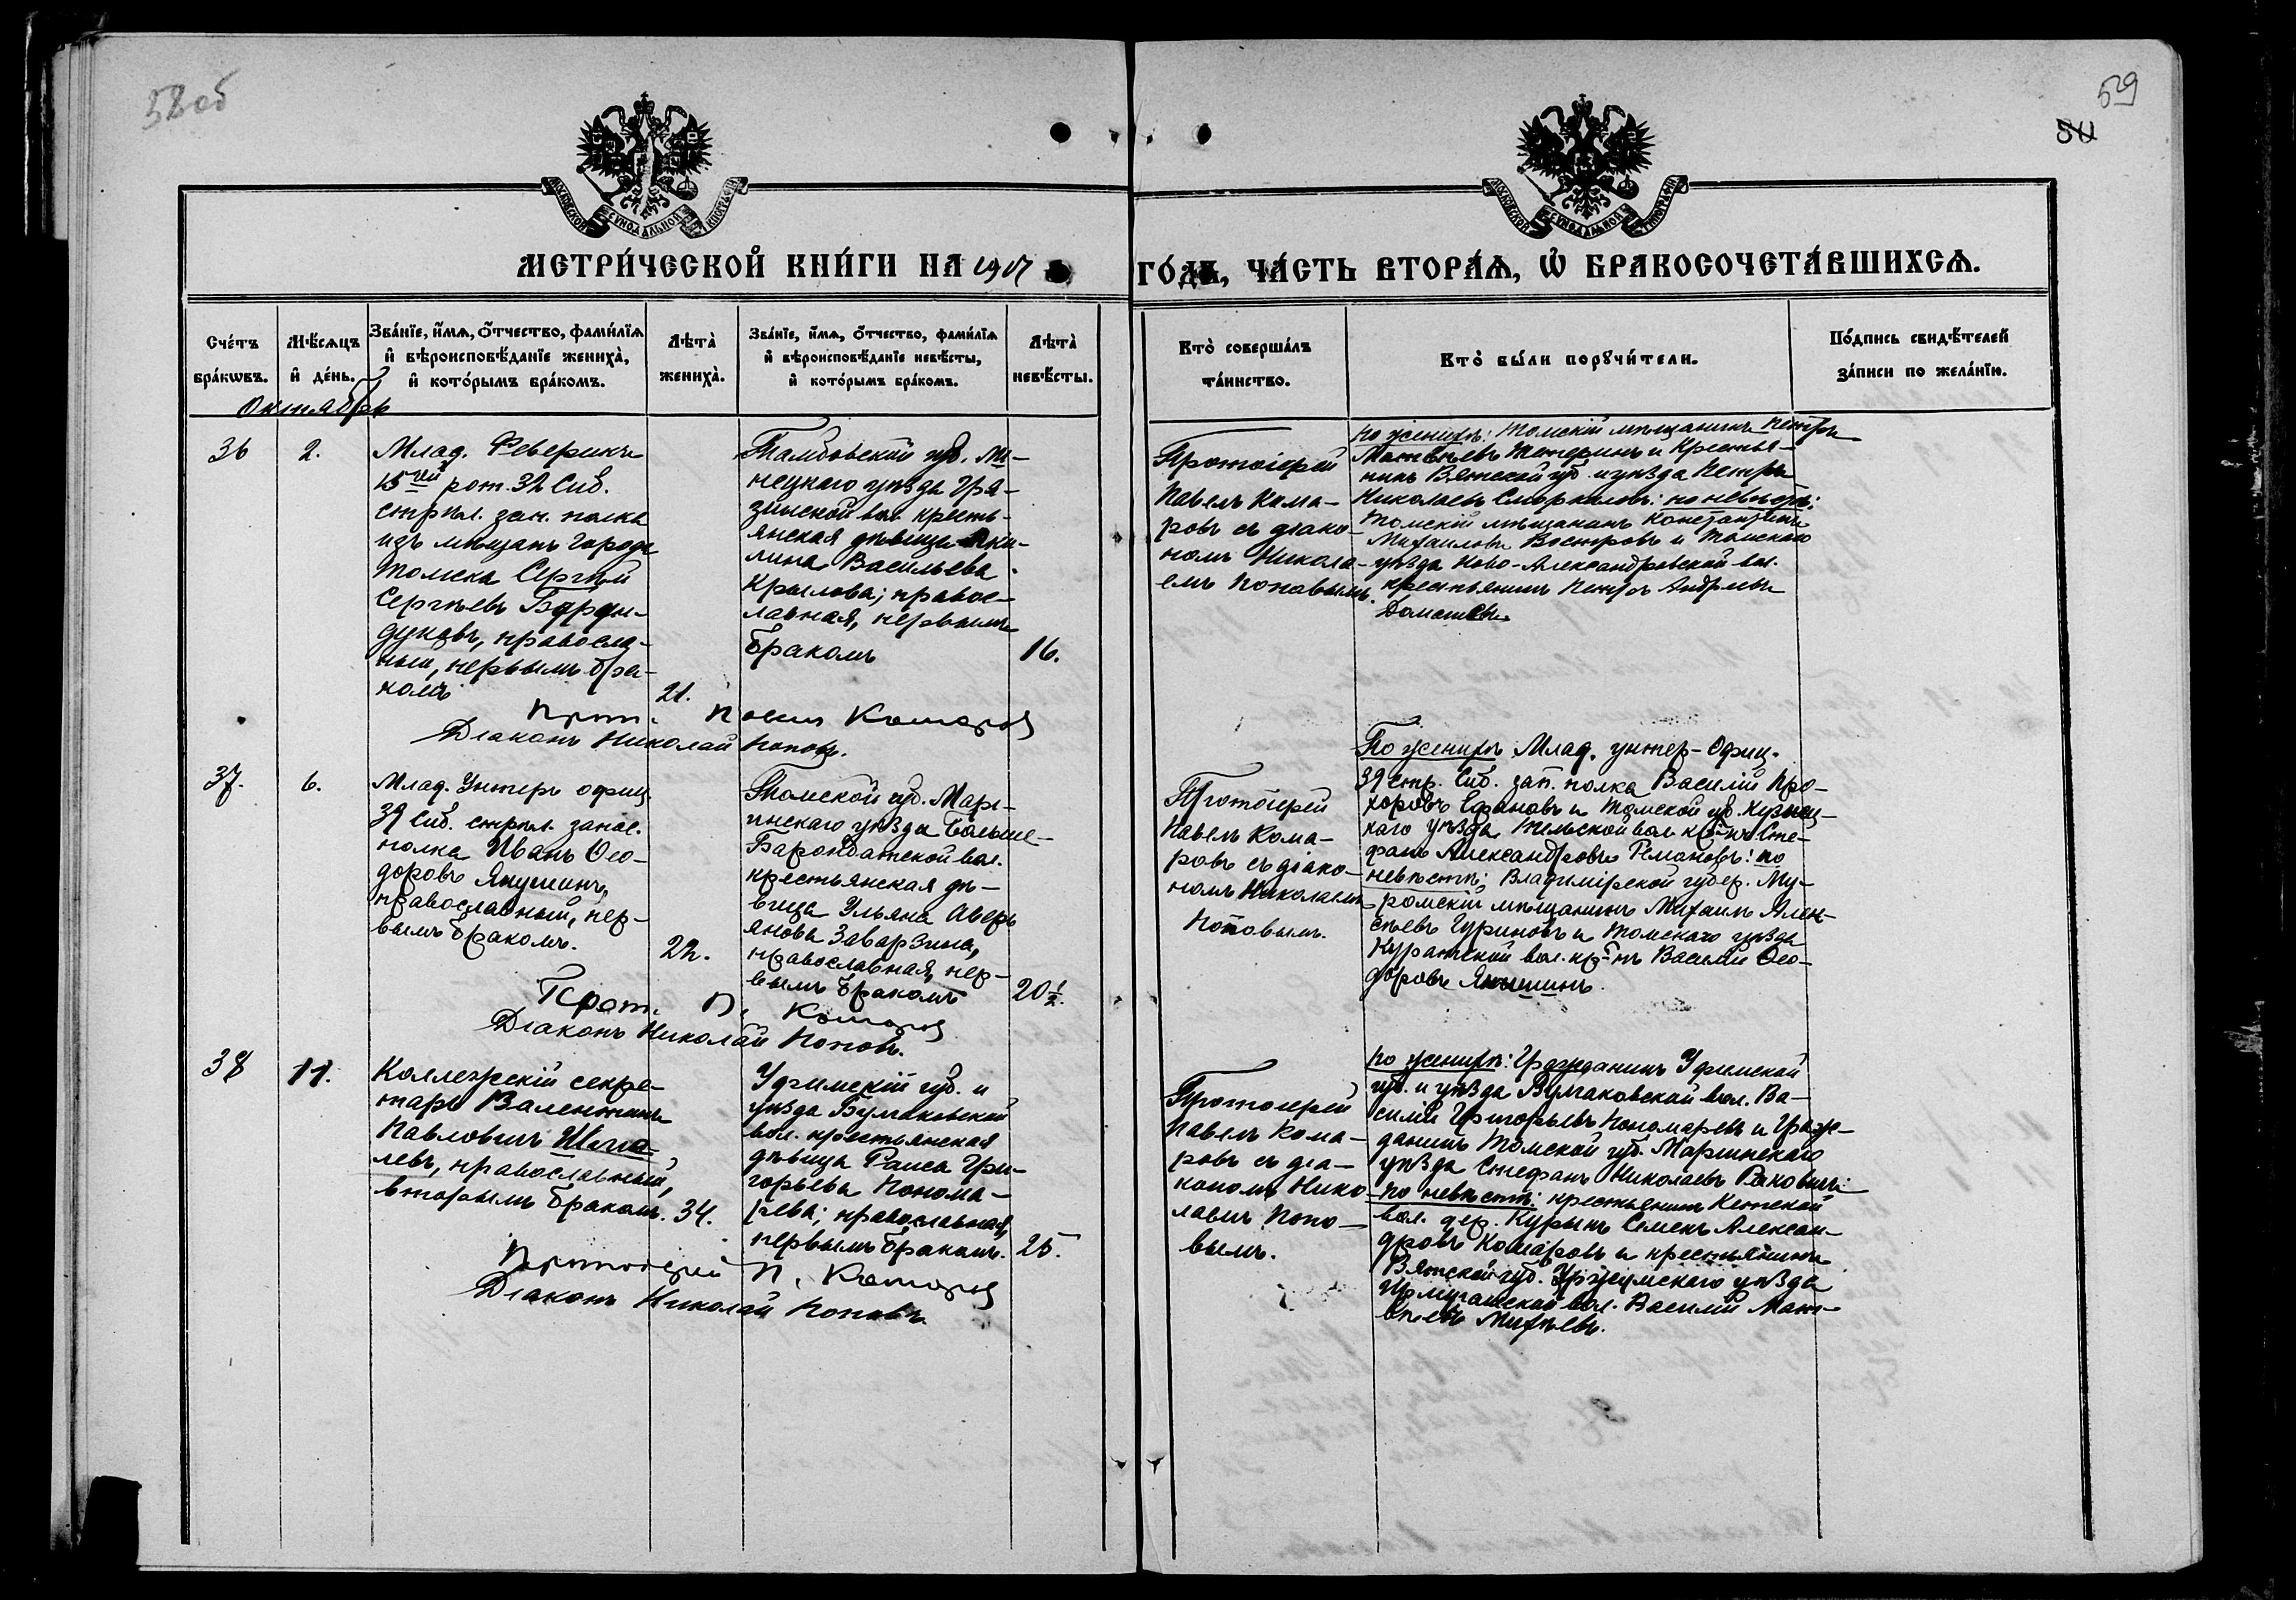 58об
59
50
МОСКОВСКОЙ СѴНОДАЛЬНОЙ ТИПОГРАФІИ
МОСКОВСКОЙ СѴНОДАЛЬНОЙ ТИПОГРАФІИ
МЕТРИ́ЧЕСКОЙ КНИ́ГИ НА 1917
ГО́ДЪ, ЧА́СТЬ ВТОРА́Ѧ, Ѡ҆ БРАКОСОЧЕТА́ВШИХСѦ.
Сче́тъ бра́кѡвъ.
Мѣ́сѧцъ и҆ де́нь.
Зва́нїе, и҆́мѧ, ѻ҆́тчество, фами́лїѧ
и҆ вѣроисповѣ́данїе жениха̀,
и҆ кото́рымъ бра́комъ.
Лѣта̀ жениха̀.
Зва́нїе, и҆́мѧ, ѻ҆́тчество, фами́лїѧ
и҆ вѣроисповѣ́данїе невѣ́сты,
и҆ кото́рымъ бра́комъ.
Лѣта̀ невѣ́сты.
Кто̀ соверша́лъ та́инство.
Кто̀ бы́ли порꙋчи́тели.
По́дпись свидѣ́телей за́писи по жела́нїю.
Октябрь
36
2.
Млад. Феверикъ
15ой рот. 32 Сиб.
стрѣл. зап. полка
изъ мѣщанъ города
Томска Сергѣй
Сергѣевъ
православ-
ный, первымъ бра-
комъ
21.
Тамбовской губ. Ли-
пецкаго уѣзда Гря-
зинской вол. кресть-
янская дѣвица Аки-
лина Васильева
Крылова; правос-
лавная, первымъ
бракомъ
16.
Протоіерей
Павелъ Кома-
ровъ съ діако-
номъ Никола-
емъ Поповымъ.
по женихѣ: Томскій мѣщанинъ Петръ
Матвѣевъ и Крестья-
нинъ Вятской губ. и уѣзда Петръ
Николаевъ по невѣстѣ:
Томскій мѣщанинъ Константинъ
Михаиловъ Востровъ и Томскаго
уѣзда Ново-Александровской вол.
крестьянинъ Петръ Андреевъ
Прот. Павелъ Комаровъ
Діаконъ Николай Поповъ.
37.
6.
Млад. Унтеръ офиц.
39 Сиб. стрѣл. запас.
полка Иванъ Ѳео-
доровъ Якушинъ,
православный, пер-
вымъ бракомъ.
22.
Томской губ. Марі-
инскаго уѣзда Больше-
Барандатской вол.
крестьянская дѣ-
вица Ульяна Аверь
янова Заварзина,
православная, пер-
вымъ бракомъ
20½.
Протоіерей
Павелъ Кома-
ровъ съ діако-
номъ Николаемъ
Поповымъ.
По женихѣ Млад. унтер-Офиц.
39 стр. Сиб. зап. полка Василій Про-
хоровъ и Томской губ. Кузнец-
каго уѣзда вол. кр-нъ Сте-
фанъ Александровъ по
невѣстѣ; Владимірской губер. Му-
ромскій мѣщанинъ Михаилъ Алек-
сѣевъ Гуриновъ и Томскаго уѣзда
вол. кр-нъ Василій Ѳео-
доровъ Якушинъ.
Прот. П. Комаровъ
Діаконъ Николай Поповъ.
38
11.
Коллежскій секре-
тарь Валентинъ
Павловичъ Шма-
левъ, православный,
вторымъ бракомъ.
34.
Уфимскій губ. и
уѣзда Булгаковской
вол. крестьянская
дѣвица Раиса Гри-
горьева Понома-
рева; православная,
первымъ бракомъ.
25.
Протоіерей
Павелъ Кома-
ровъ съ діа-
кономъ Нико-
лаемъ Попо-
вымъ.
по женихѣ: Гражданинъ Уфимской
губ. и уѣзда Булгаковской вол. Ва-
силій Григорьевъ Пономаревъ и Граж-
данинъ Томской губ. Маріинскаго
уѣзда Стефанъ Николаевъ Раковичъ:
по невѣстѣ; крестьянинъ Кетской
вол. дер. Курьинъ Семенъ Алексан-
дровъ Комаровъ и крестьянинъ
Вятской губ. Уржумскаго уѣзда
вол. Василій Мат-
вѣевъ Михѣевъ.
Протоіерей П. Комаровъ
Діаконъ Николай Поповъ.